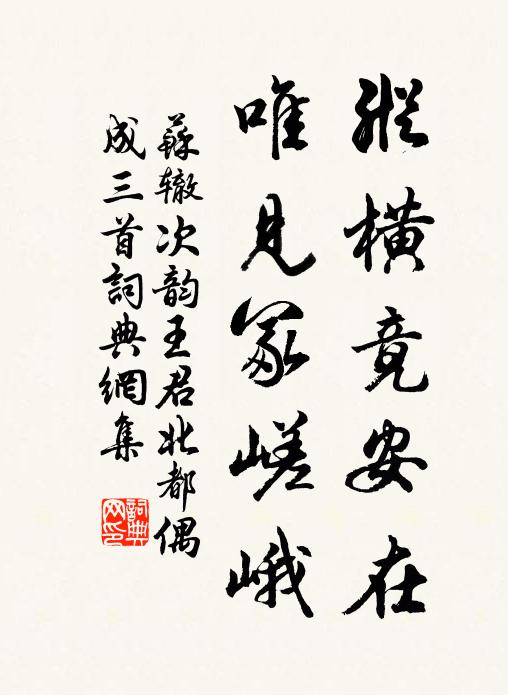 縱橫竟安在
唯見冢嵯峨
蘇辙次韵王君北都偶
成三首詞典網集
詞典
网印